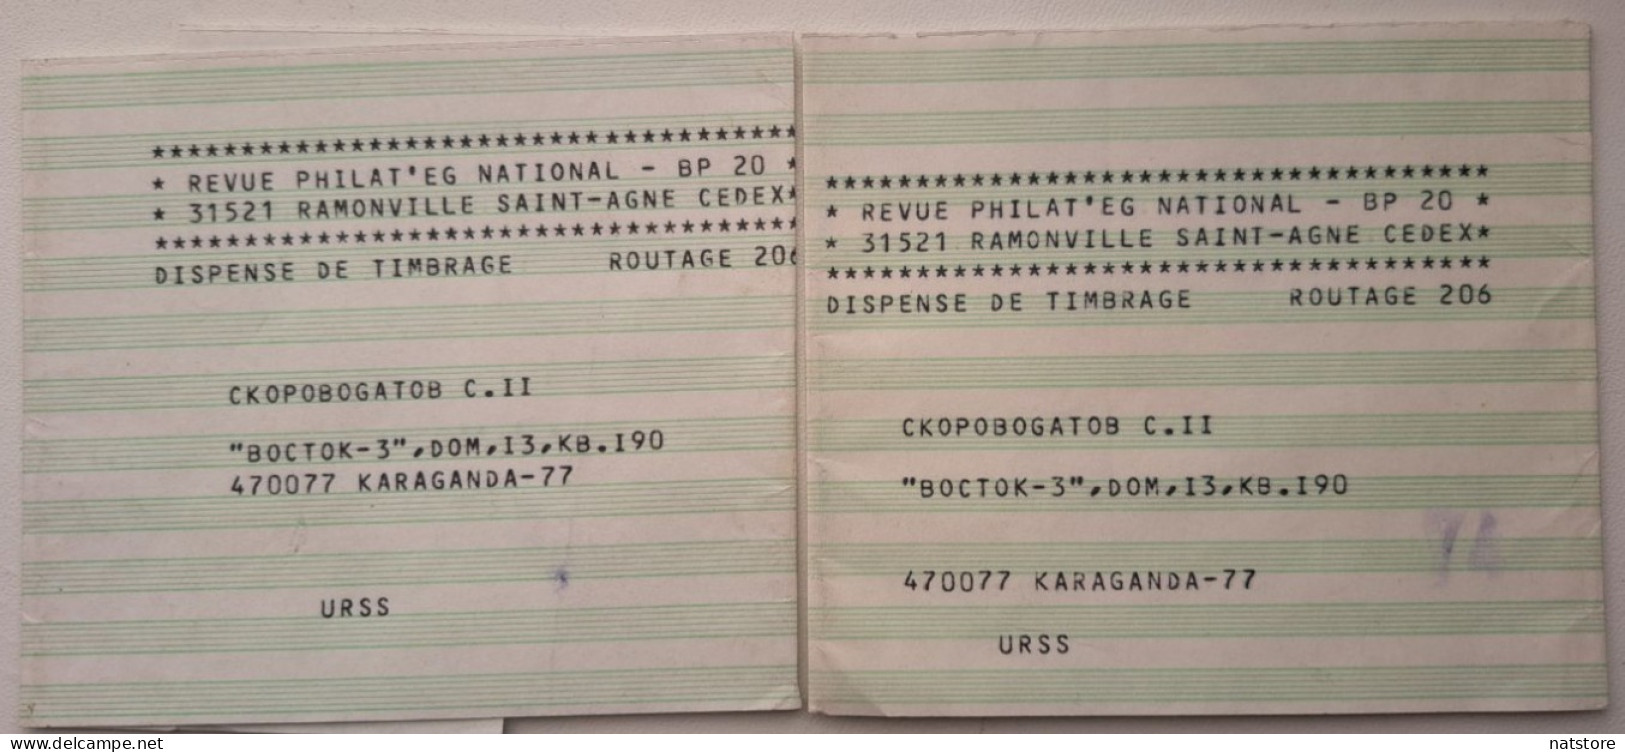 ************************************
* REVUE PHILAT'EG NATIONAL - BP 20 *
* 31521 RAMONVILLE SAINT-AGNE CEDEX*
************************************
DISPENSE DE TIMBRAGE ROUTAGE 206
CKOPOBOGATOB C.II
"BOCTOK-3",DOM,I3,KB.I90
470077 KARAGANDA-77
URSS
*************************************
* REVUE PHILAT'EG NATIONAL - BP 20 *
* 31521 RAMONVILLE SAINT-AGNE CEDEX*
*************************************
DISPENSE DE TIMBRAGE ROUTAGE 206
CKOPOBOGATOB C.II
"BOCTOK-3",DOM,I3,KB.I90
470077 KARAGANDA-77
URSS
www.delcampe.net
natstore